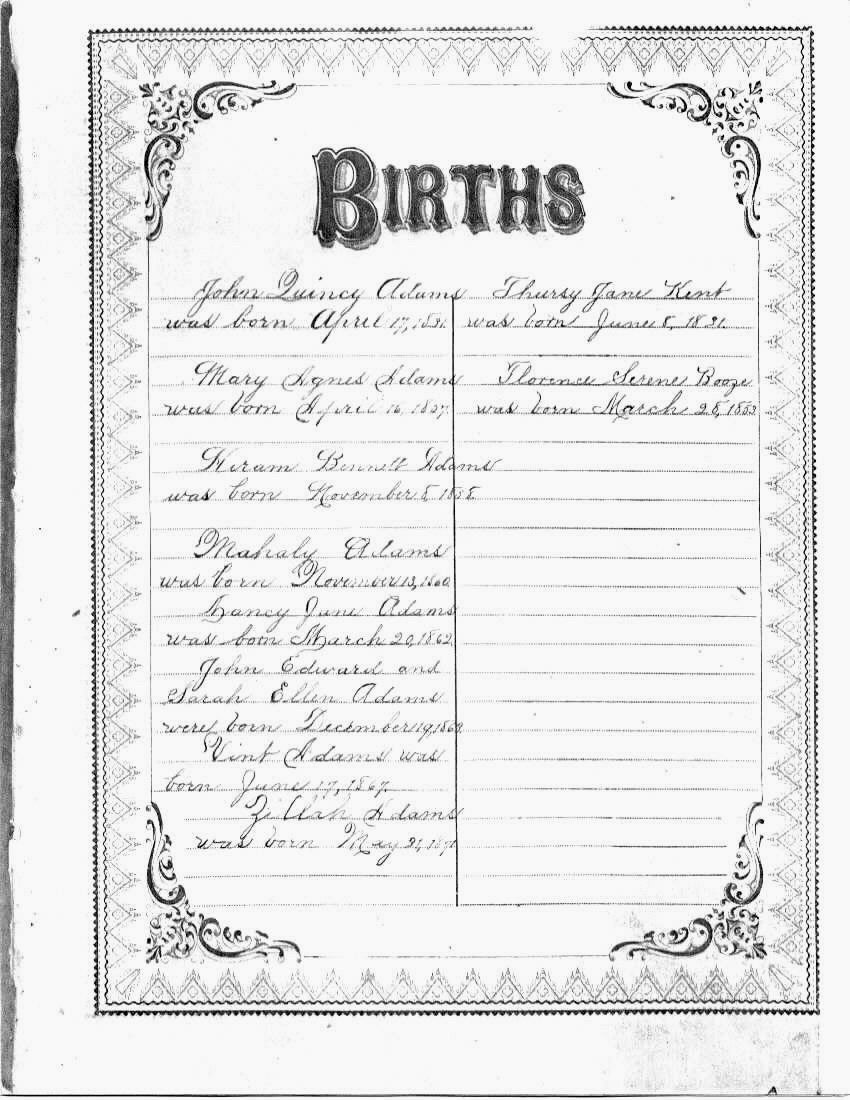 BIRTHS
John Quincy Adams
was born April 17, 1831.
Mary Agnes Adams
was born April 16, 1857.
Hiram Bennett Adams
was born November 8, 1858
Mahaly Adams
was born November 13, 1860
Nancy Jane Adams
was born March 20, 1862
John Edward and
Sarah Ellen Adams
were born December 19,
Vint Adams was
born June 17, 1867.
Zillah Adams
was born May 21,
Thursy Jane Kent
was born June 8, 1831.
Florence Serene Booze
was born March 28,